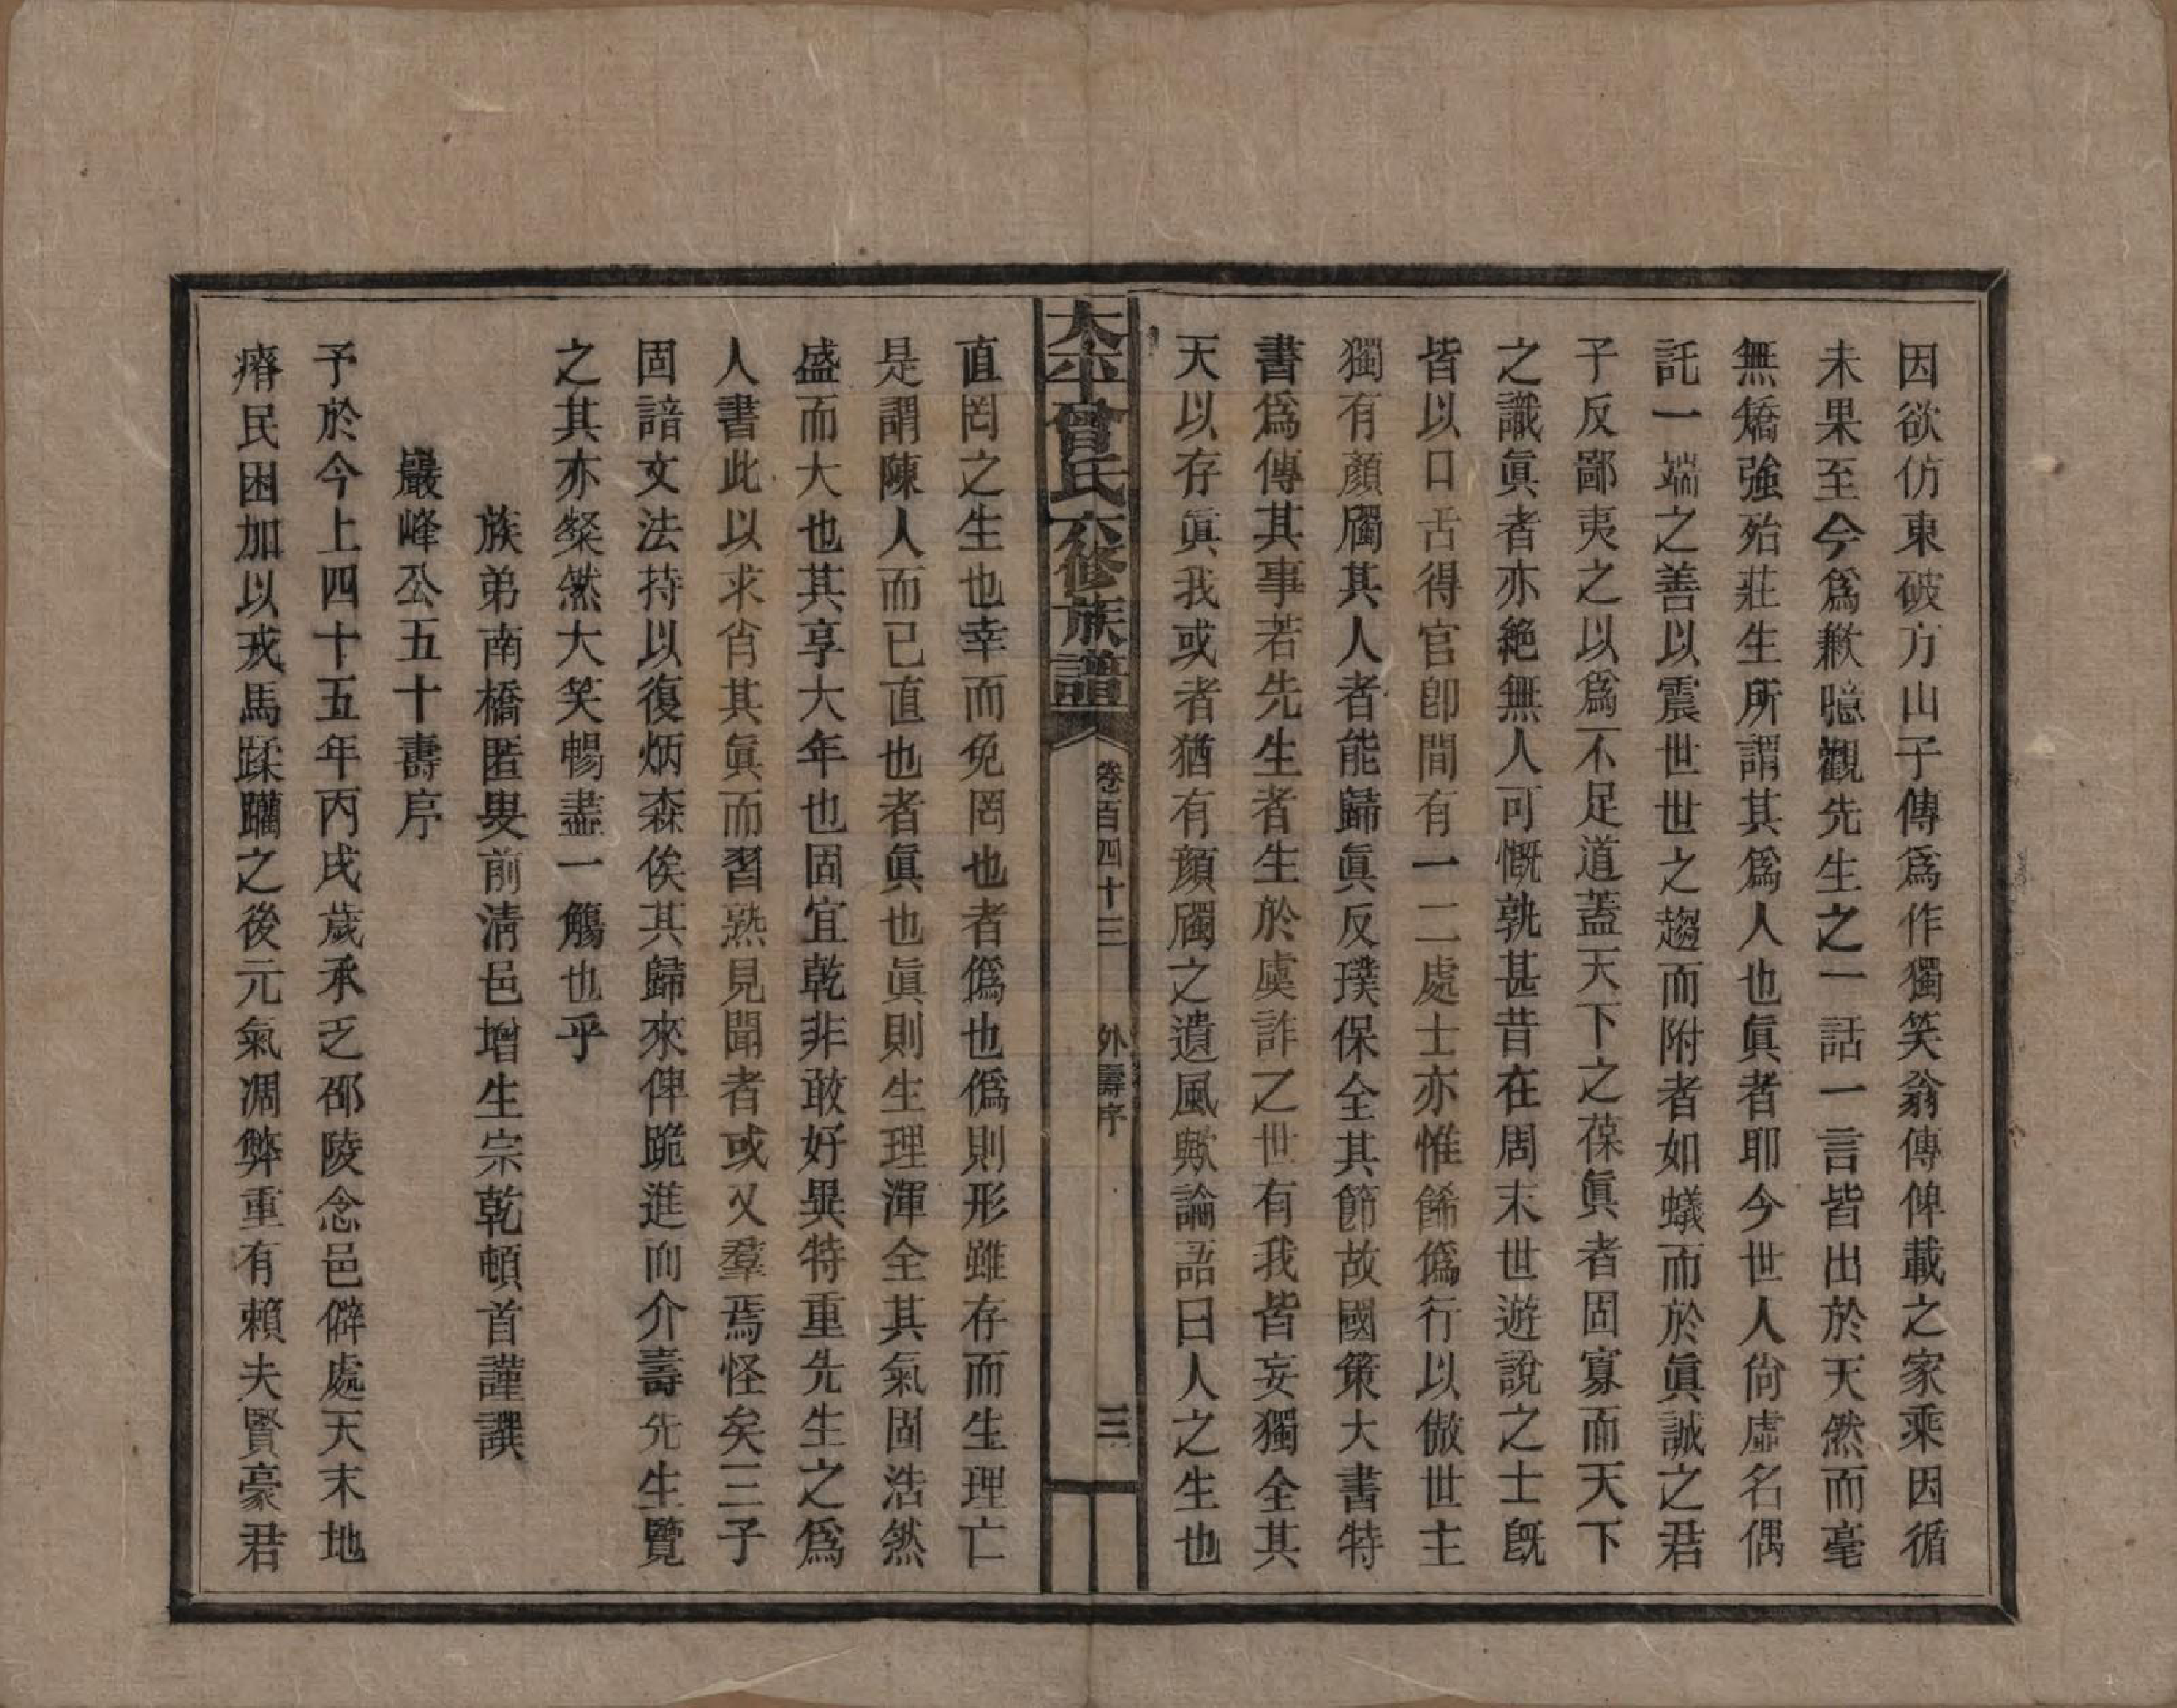 因欲仿東破方山子傳爲作獨笑翁傳俾載之家乘因循
未果至今爲歉臆觀先生之一話一言皆出於天然而毫
無矯強殆莊生所謂其爲人也眞者耶今世人尙虛名偶
託一端之善以震世世之趨而附者如蟻而於眞誠之君
子反鄙夷之以爲不足道蓋天下之葆眞者固寡而天下
之識眞者亦絶無人可慨孰甚昔在周末世遊說之士旣
皆以口舌得官卽間有一二處士亦惟餙僞行以傲世主
獨有顏斶其人者能歸眞反璞保全其節故國策大書特
書爲傳其事若先生者生於虞詐之世有我皆妄獨全其
天以存眞我或者猶有顏斶之遺風歟論語曰人之生也
太平曾氏六修族譜 卷百四十三 外壽序 三
直罔之生也幸而免罔也者僞也僞則形雖存而生理亡
是謂陳人而已直也者眞也眞則生理渾全其氣固浩然
盛而大也其享大年也固宜乾非敢好異特重先生之爲
人書此以求肖其眞而習熟見聞者或又羣焉怪矣三子
固諳文法持以復炳森俟其歸來俾跪進而介壽先生覽
之其亦粲然大笑暢盡一觴也乎
族弟南橋匿叟前淸邑增生宗乾頓首謹譔
巖峰公五十壽序
予於今上四十五年丙戌歲承乏邵陵念邑僻處天末地
瘠民困加以戎馬蹂躪之後元氣凋弊重有賴夫賢豪君